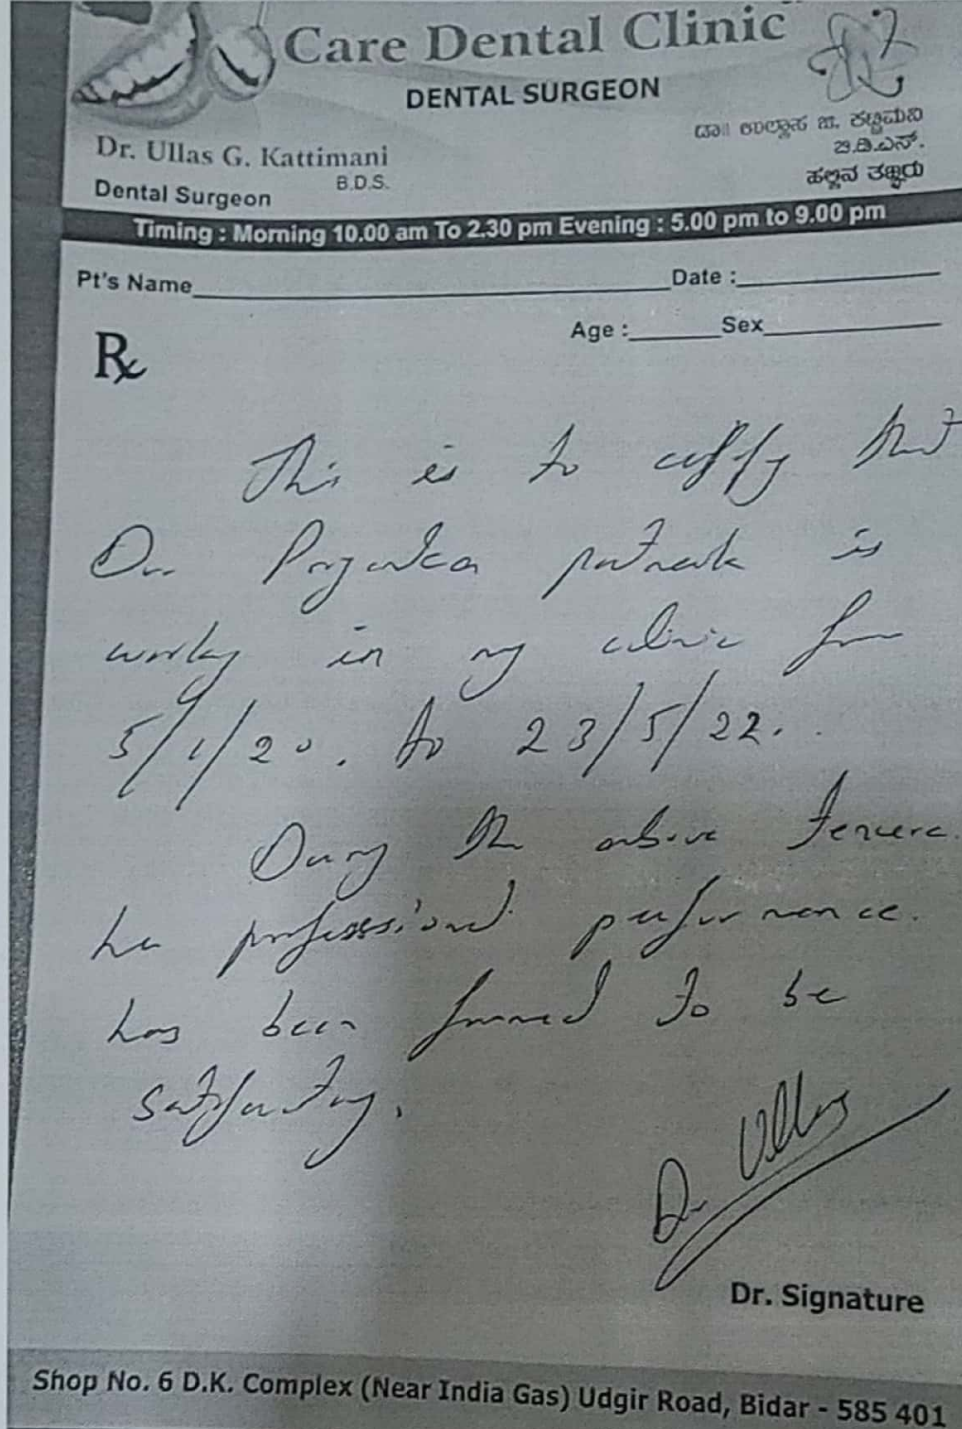 Care Dental Clinic
DENTAL SURGEON
Dr. Ullas G. Kattimani
B.D.S.
Dental Surgeon
ಡಾ|| ಉಲ್ಲಾಸ ಜಿ. ಕಟ್ಟಿಮನಿ
ಬಿ.ಡಿ.ಎಸ್.
ಹಲ್ಲಿನ ತಜ್ಞರು
Timing : Morning 10.00 am To 2.30 pm Evening : 5.00 pm to 9.00 pm
Pt's Name Date :
Age : Sex
Rx
This is to certify that
Dr. Priyanka is
working in my clinic from
5/1/20. to 23/5/22.
During the above tenure
her professional performance.
has been found to be
satisfactory.
Dr Ullas
Dr. Signature
Shop No. 6 D.K. Complex (Near India Gas) Udgir Road, Bidar - 585 401